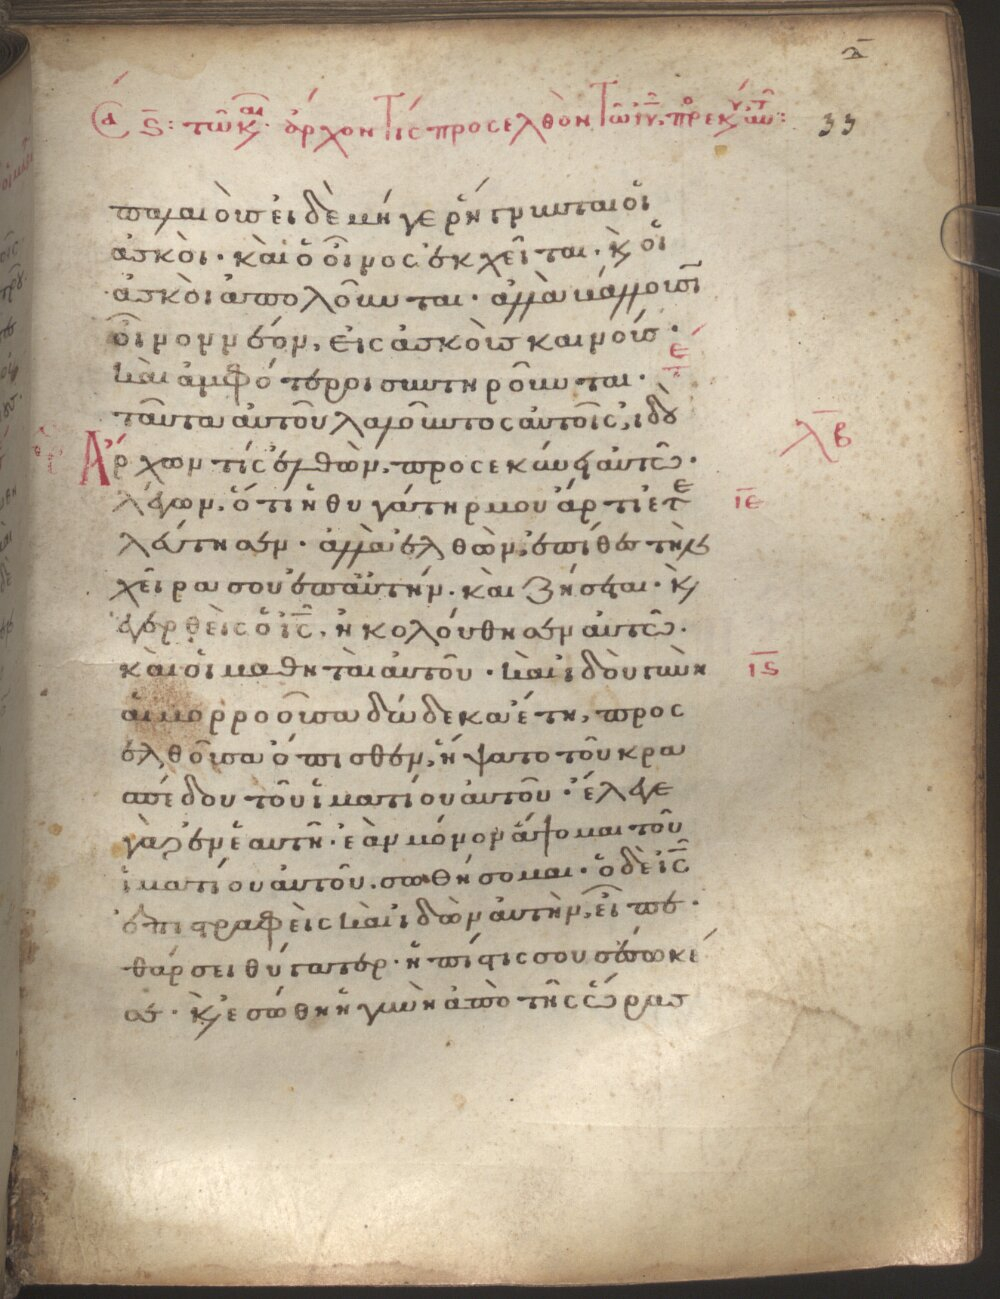 Σα ϛ: τῶ κ(αι) ἄρχον τίς προσελθὸν τῶ ἰυ, προεκύ αυτ:
33
παλαιοὺσ εἰ δὲ μήγε ῥήγνυνται οἱ
ἀσκὸι· κὰι ὁ οἶνος ἐκχεῖται· κ οἱ
ἀσκὸι ἀπολοῦνται· ἀλλὰ βάλλουσῖ
οἶνον νέον, εἰς ἀσκοὺσ καινούσ·
καὶ ἀμφότεροι συντηροῦνται·
ταῦτα αὐτοῦ λαλοῦντος αὐτοῖς, ἰδοὺ
Ἄρχων τίς ἐλθὼν, προσεκύνει αὐτῶ·
λέγων, ὅτι ἡ θυγάτηρ μου ἄρτι ἐτε
λεύτησεν· ἀλλὰ ἐλθὼν, ἐπίθες τὴν
χεῖρα σου ἐπαὐτήν· καὶ ζήσεται· κ
ἐγερθεὶς ὁ ἰς, ἠκολούθησεν αὐτῶ·
κὰι οἱ μαθηταὶ αὐτοῦ· καὶ ἰδοὺ γυνὴ
αἱμορροοῦσα δώδεκα ἔτη, προς
ελθοῦσα ὄπισθεν, ἥψατο τοῦ κρα
σπέδου τοῦ ἱματίου αὐτοῦ· ἔλεγε
γὰρ ἐν ἑαυτῆ· ἐὰν μόνον ἅψομαι τοῦ
ἱματίου αὐτοῦ. σωθήσομαι· ὁ δὲ ἰς
ἐπιστραφεὶς καὶ ἰδὼν αὐτὴν, εἶπε·
θάρσει θύγατερ· ἡ πίστις σου σέσωκέ
σε· κ ἐσώθη ἡ γυνὴ ἀπὸ τῆς ὥρασ
λβ
ιε
ιϛ